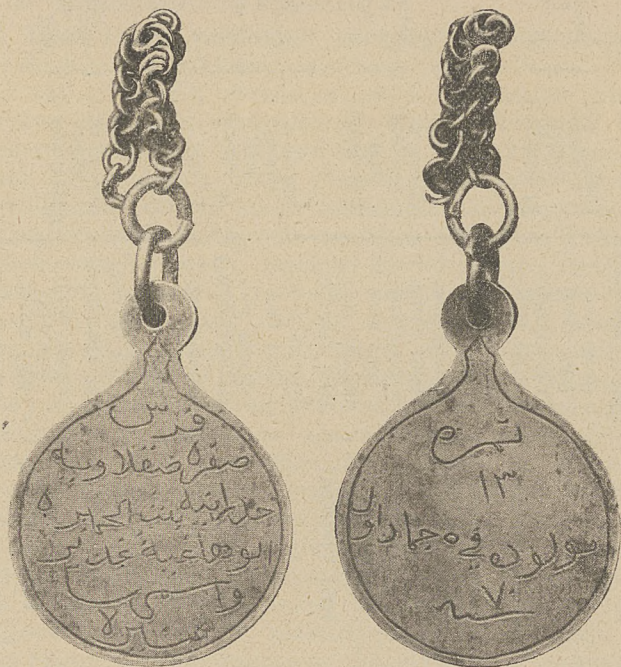 فرس
صفره صقلاويه
جدرانيه بنت الحميره
ابوها عبية
واسمى
نمره
١٣
مولوده في ٥ جماد اول
سنه ٧